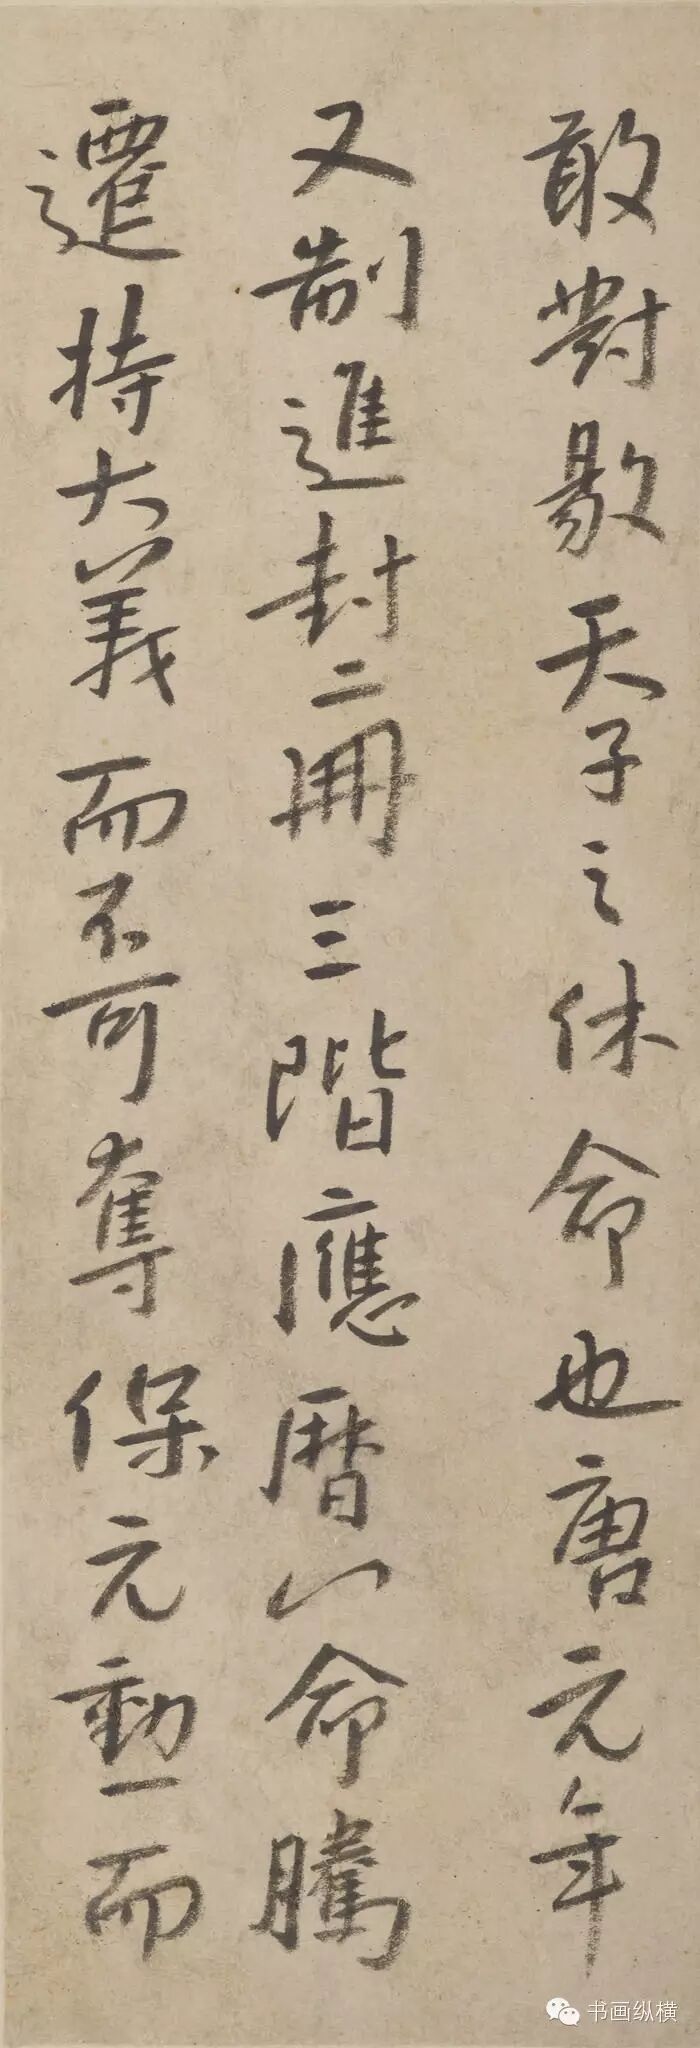 敢對敭天子之休命也唐元年
又制進封二冊三階應曆八命騰
遷持大義而不可奪保元勳而
书画纵横